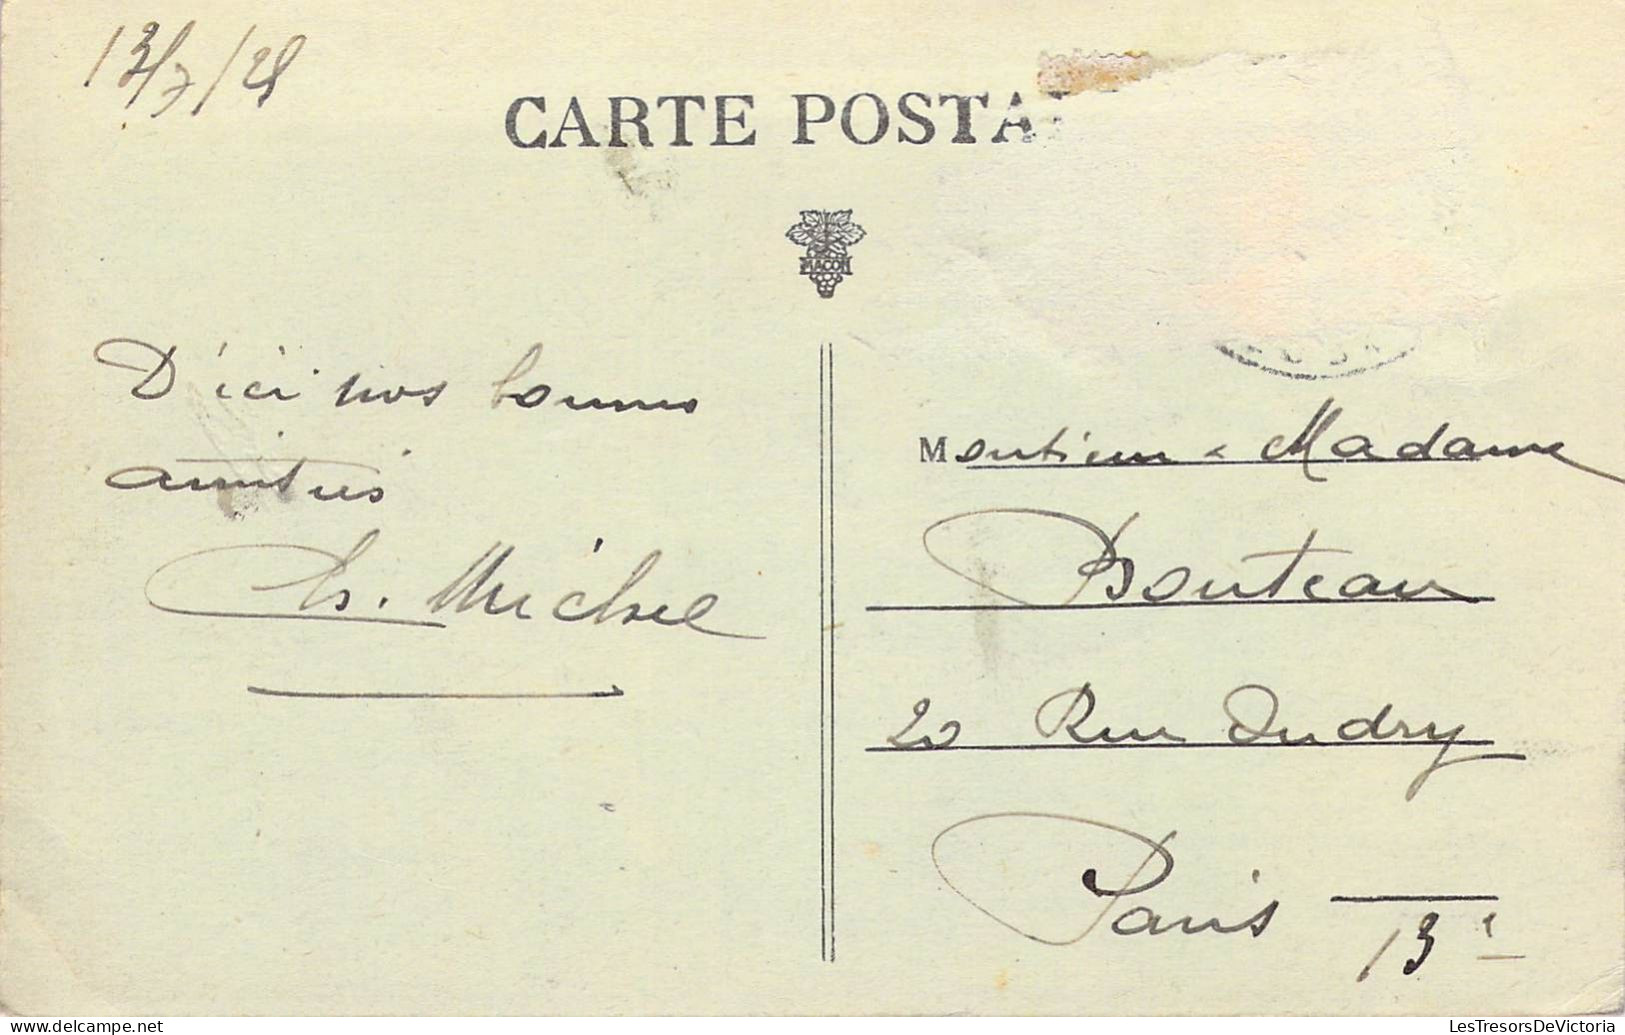 13/7/28
CARTE POSTA
MACON
D'ici nos bonnes
amitiés
Ch. Michel
Monsieur & Madame
Bouteau
20 Rue Dudry
Paris 13e
delcampe.net
LesTresorsDeVictoria